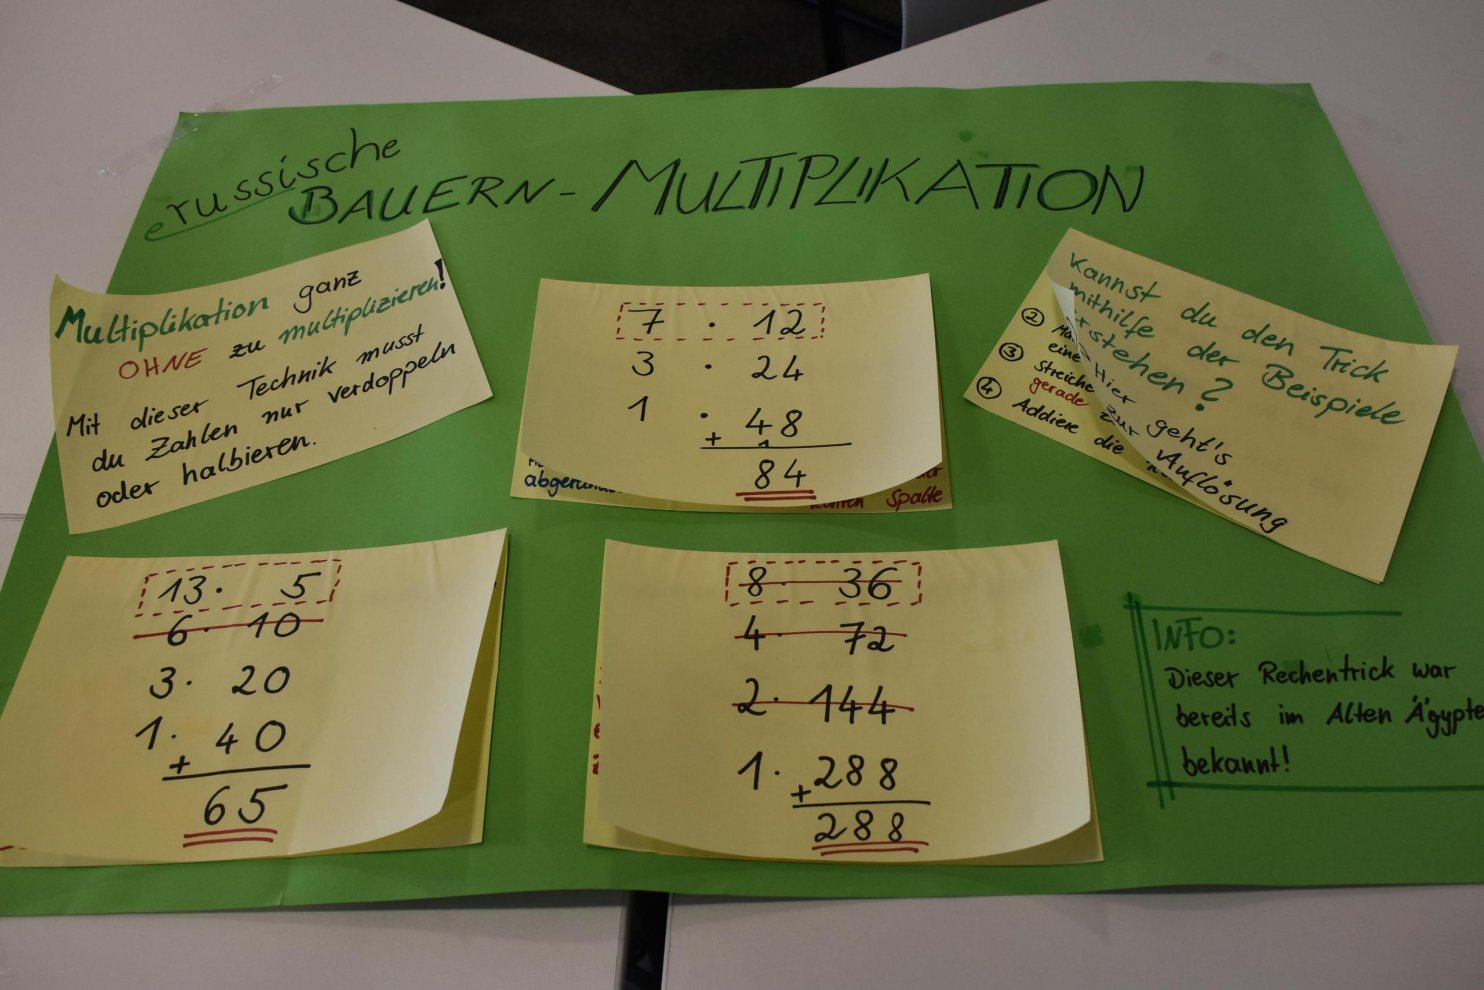 russische
BAUERN-MULTIPLIKATION
Multiplikation ganz
OHNE zu multiplizieren!
Mit dieser Technik musst
du Zahlen nur verdoppeln
oder halbieren.
7 · 12
3 · 24
1 · 48
+
84
abgerund
Spalte
Kannst du den Trick
mithilfe der Beispiele
verstehen?
Hier geht's
zur Auflösung
②
eine
③ Streiche
gerade
④ Addiere die
13 · 5
6 · 10
3 · 20
1 · 40
+
65
8 · 36
4 · 72
2 · 144
1 · 288
+
288
INFO:
Dieser Rechentrick war
bereits im Alten Ägypte
bekannt!